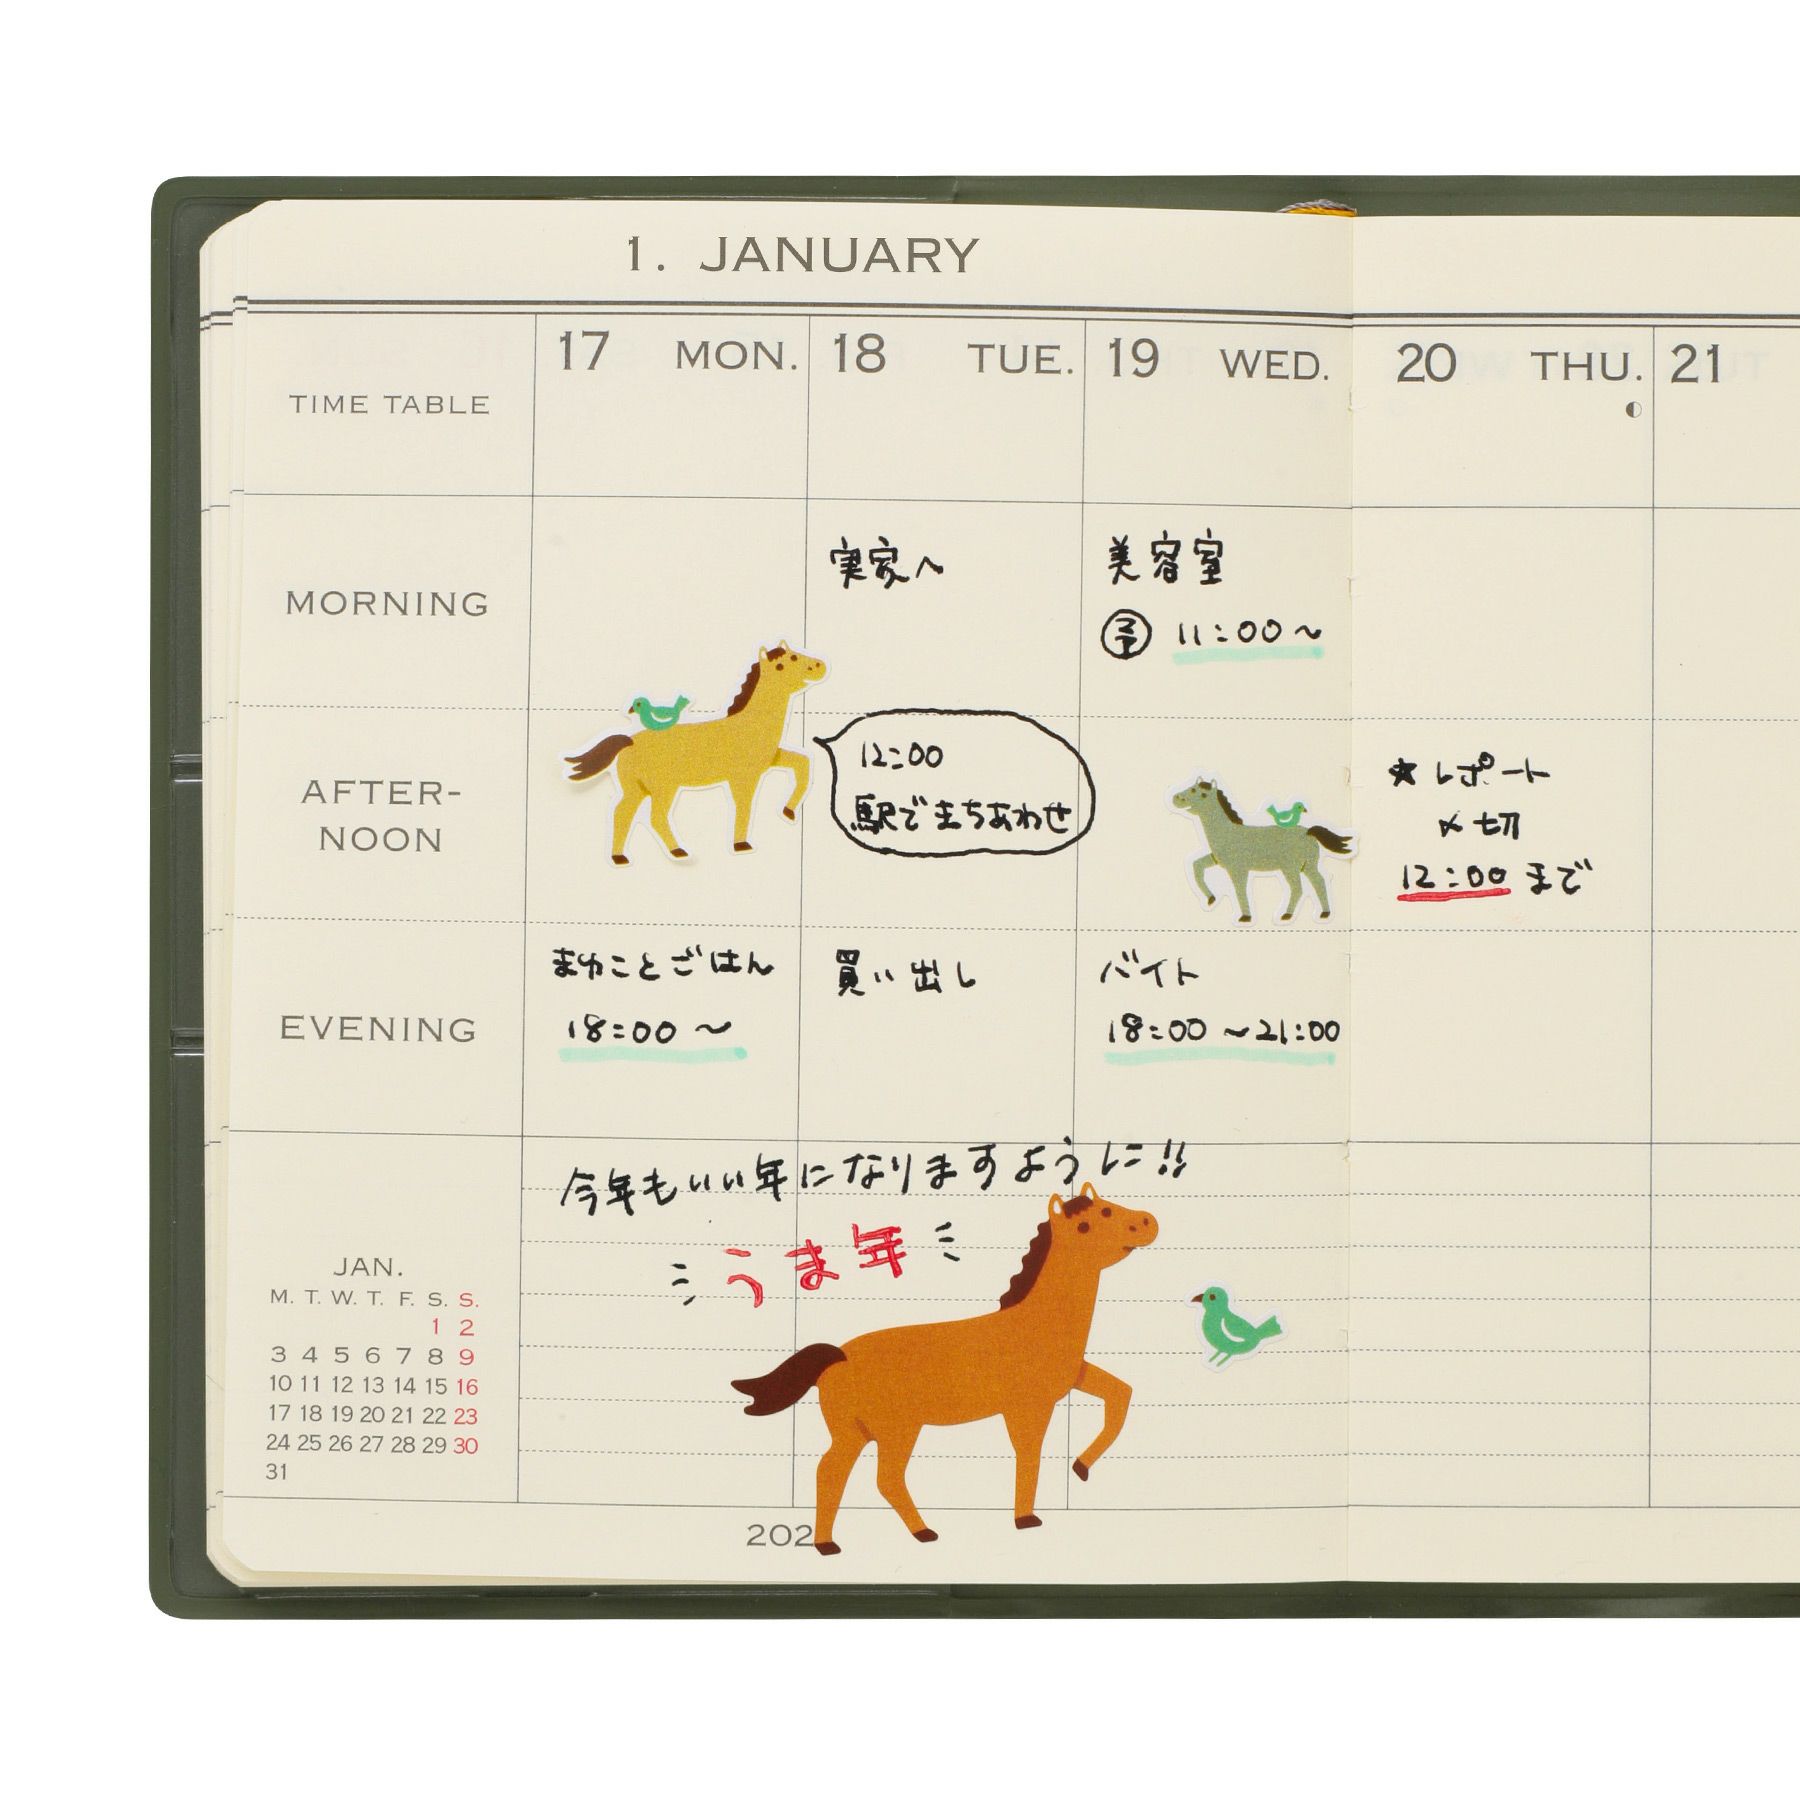 1. JANUARY
TIME TABLE
17 MON.
18 TUE.
19 WED.
20 THU.
21
MORNING
実家へ
美容室
予 11:00~
AFTER-
NOON
12:00
駅でまちあわせ
★レポート
〆切
12:00まで
EVENING
ごはん
18:00~
買い出し
バイト
18:00~21:00
今年もいい年になりますように!!
うま年
JAN.
M. T. W. T. F. S. S.
1 2
3 4 5 6 7 8 9
10 11 12 13 14 15 16
17 18 19 20 21 22 23
24 25 26 27 28 29 30
31
202